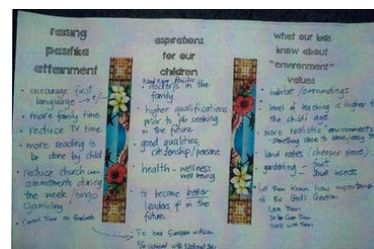 raising
pasifika
attainment
• encourage first
language → +/-
• more family time
• reduce TV time
• more reading to
be done by child
• reduce church
commitments during
the week / bingo
Gambling
• Control Time on Facebook
aspirations
for our
children
doctors in the
family
• higher qualifications
prior to job seeking
in the future.
• good qualities
citizenship/persons
health - wellness
well being
• to become better
leaders in the
future.
what our kids
know about
"environment"
values
habitat / surroundings
level of teaching is higher to
the child's age
more realistic "environments"
land rates (cheaper slope)
gardening - fruit
small insects
Let them know how importance
of the God's Creation
Love Them
To be Care Them